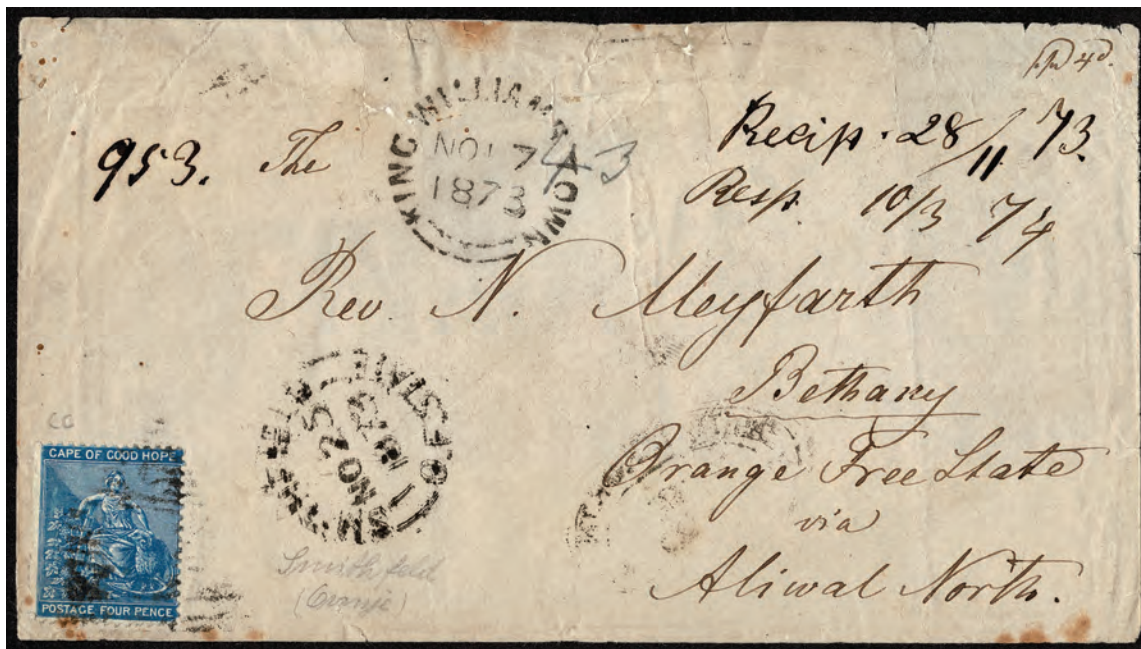 pd 4d.
953. The
KING WILLIAMS TOWN
NO 17
1873
73
Recip. 28/11 73.
Resp. 10/3 74
Rev. N. Meyfarth
Bethany
Orange Free State
via
Aliwal North.
SMITHFIELD O.F. STATE
NO 25
1873
CG
CAPE OF GOOD HOPE
POSTAGE FOUR PENCE
Smithfield
(Oranje)